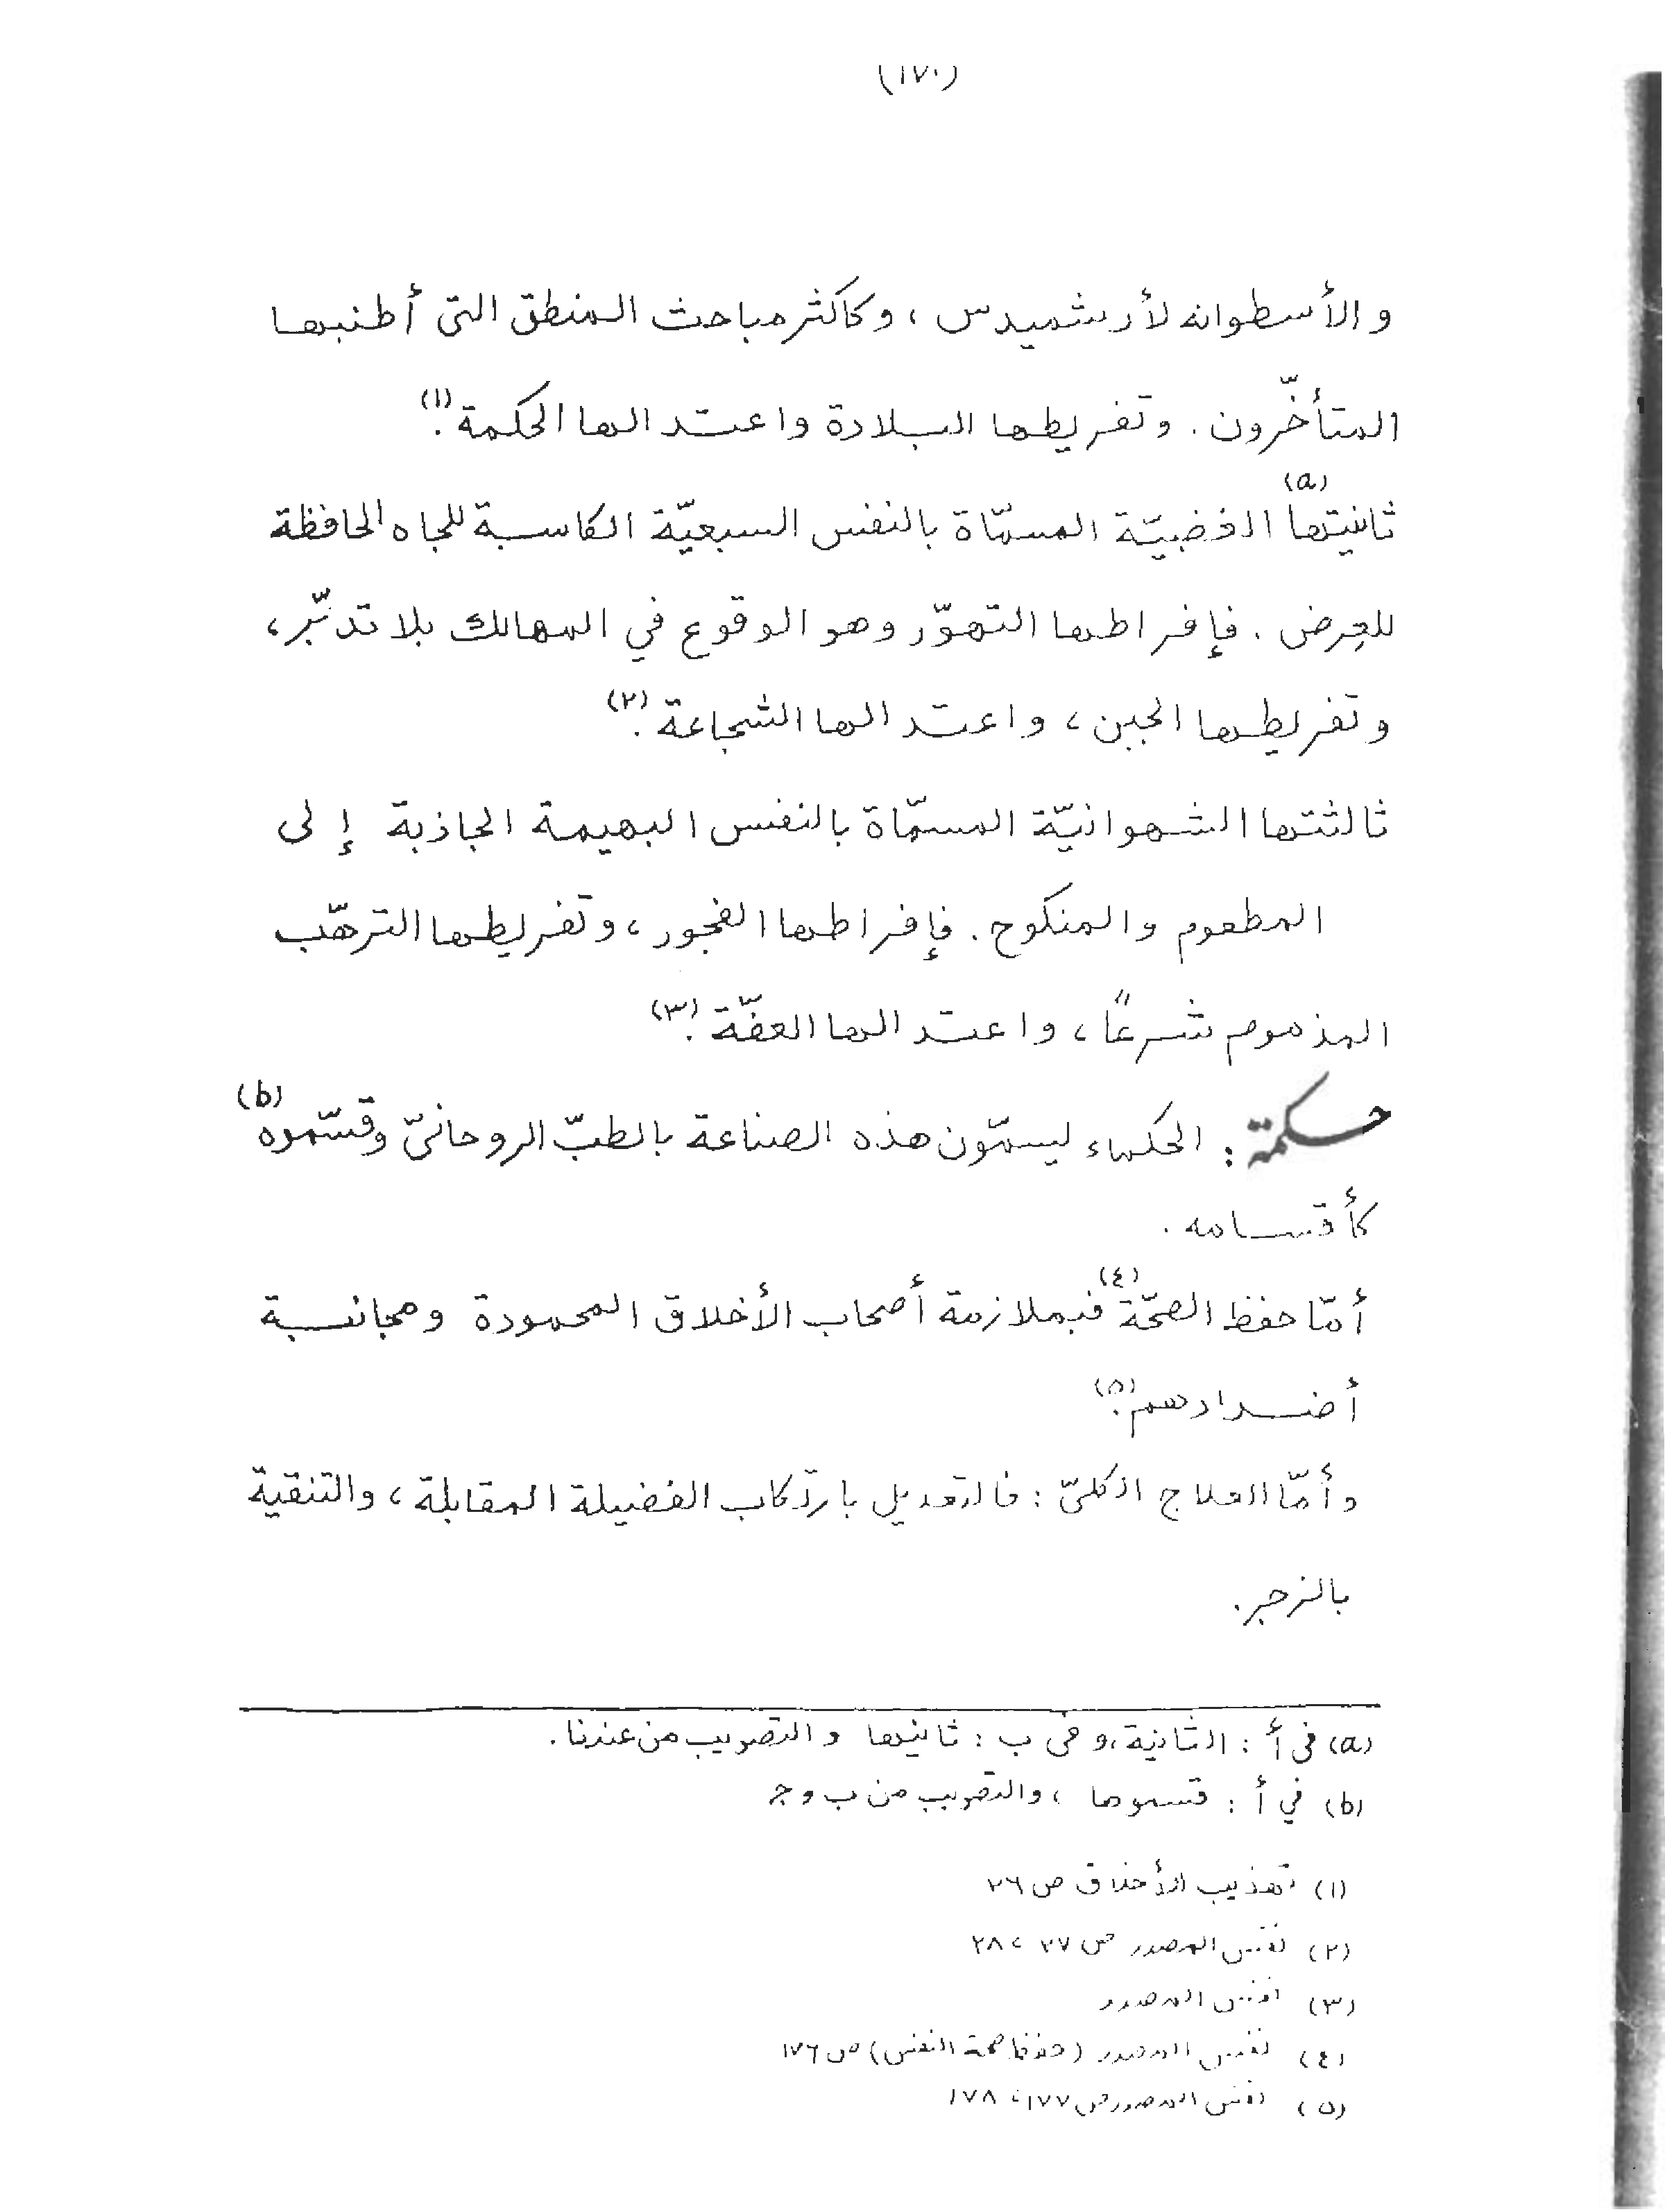 (١٧٠)
والأسطوانه لأرشميدس ، وكاكثر مباحث المنطق التى أطنبها
المتأخّرون . وتفريطها البلادة واعتدالها الحكمة (١).
ثانيتها (a) الغضبيّة المسمّاة بالنفس السبعيّة الكاسبة للجاه الحافظة
للعِرض . فإفراطها التهوّر وهو الوقوع في المهالك بلا تدبّر ،
وتفريطها الجبن ، واعتدالها الشجاعة (٢).
ثالثتها الشهوانيّة المسمّاة بالنفس البهيمة الجاذبة إلى
المطعوم والمنكوح . فإفراطها الفجور ، وتفريطها الترهّب
المذموم شرعاً ، واعتدالها العفّة (٣).
حكمة : الحكماء يسمّون هذه الصناعة بالطبّ الروحانىّ وقسّموه (b)
كأقسامه .
أمّا حفظ الصحّة (٤) فبملازمة أصحاب الأخلاق المحمودة ومجانبة
أضدادهم (٥).
وأمّا العلاج الكلىّ : فالتعديل بارتكاب الفضيلة المقابلة ، والتنقية
بالزجر .
(a) فى أ : الثانية ، وفى ب : ثانيها والتصويب من عندنا .
(b) في أ : قسموها ، والتصويب من ب وج
(١) تهذيب الأخلاق ص ٢٦
(٢) نفس المصدر ص ٢٧ ، ٢٨
(٣) نفس المصدر
(٤) نفس المصدر (حفظ صحة النفس) ص ١٧٦
(٥) نفس المصدر ص ١٧٧ ، ١٧٨